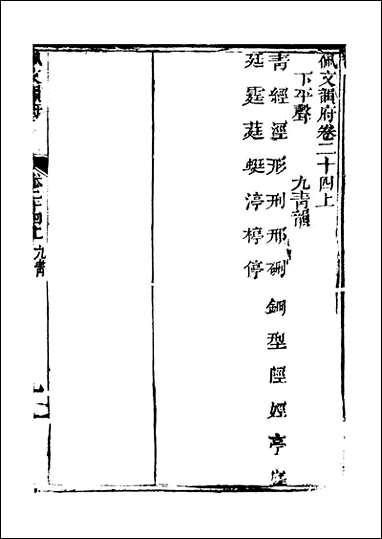 佩文韻府卷二十四上
下平聲 九青韻
青經涇形刑邢硎鉶型陘娙亭庭
廷霆莛蜓渟楟停
佩文韻府
卷二十四上 九青